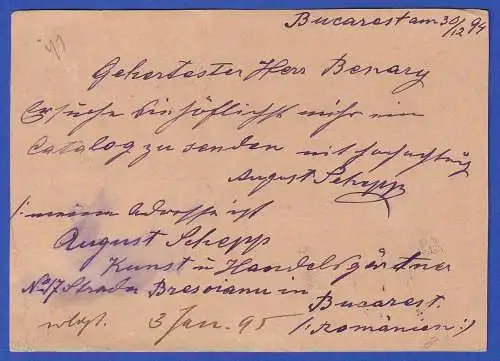 Bucarest am 30/12 94
Gehertester Herr Benary
Ersuche Sie höflichst mihr ein
Catalog zu senden mit hochachtung
August Schepp
/: meine Adresse ist
August Schepp
Kunst u Handelsgärtner
No 17 Strada in
Bucarest.
3 Jan. 95 /: România :/